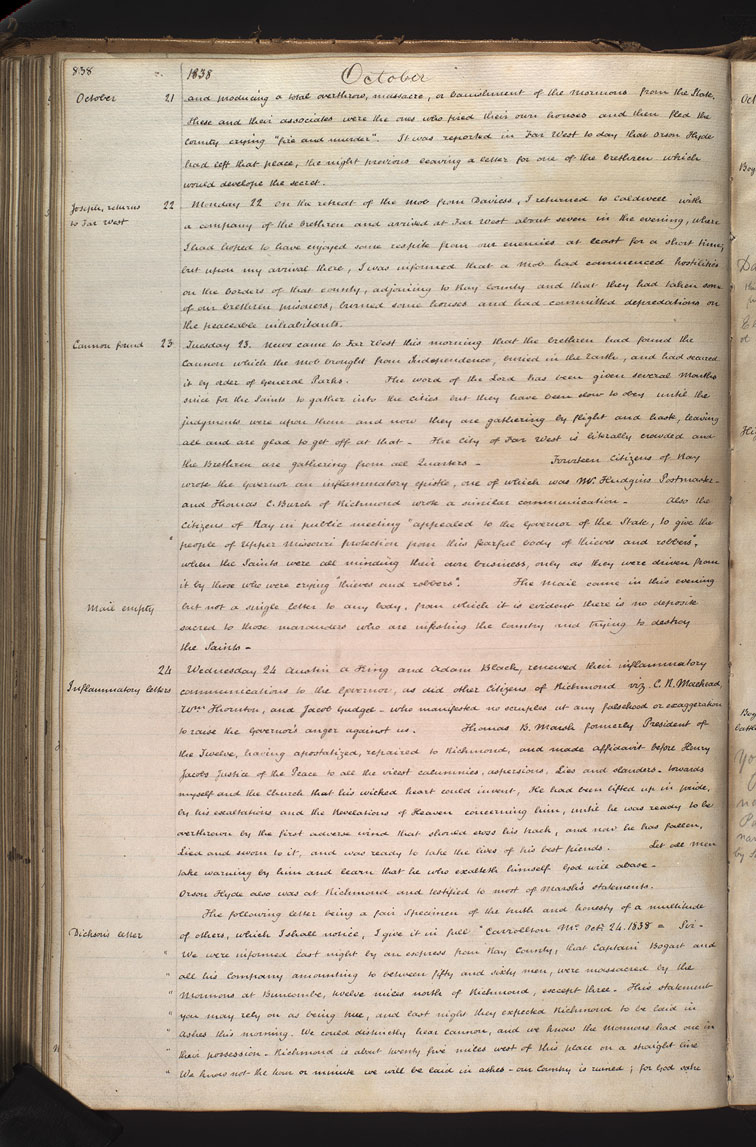 838
1838
October
October 21 and producing a total overthrow, massacre, or banishment of the Mormons from the State,
these and their associates were the ones who fired their own houses and then fled the
county crying "fire and murder". It was reported in Far West to day that Orson Hyde
had left that place, the night previous leaving a letter for one of the brethren which
would develope the secret.
Joseph, returns 22 Monday 22 On the retreat of the Mob from Daviess, I returned to Caldwell with
to Far West a company of the brethren and arrived at Far West about seven in the evening, where
I had hoped to have enjoyed some respite from our enemies at least for a short time;
but upon my arrival there, I was informed that a mob had commenced hostilities
on the borders of that county, adjoining to Ray County and that they had taken some
of our brethren prisoners, burned some houses and had committed depredations on
the peaceable inhabitants.
Cannon found 23 Tuesday 23. News came to Far West this morning that the brethren had found the
Cannon which the mob brought from Independence, buried in the Earth, and had secured
it by order of General Parks. The word of the Lord has been given several Months
since for the Saints to gather into the cities but they have been slow to obey until the
judgments were upon them and now they are gathering by flight and haste, leaving
all and are glad to get off at that - The City of Far West is literally crowded and
the Brethren are gathering from all Quarters - Fourteen Citizens of Ray
wrote the Governor an inflammatory epistle, one of which was Mr. Hudgins Postmaster-
and Thomas C. Burch of Richmond wrote a similar communication - Also the
Citizens of Ray in public meeting "appealed to the Governor of the State, to give the
" people of Upper Missouri protection from this fearful body of thieves and robbers",
when the Saints were all minding their own business, only as they were driven from
it by those who were crying "thieves and robbers". The Mail came in this evening
Mail empty but not a single letter to any body, from which it is evident there is no deposite
sacred to those marauders who are infesting the country and trying to destroy
the Saints -
24 Wednesday 24 Austin A King and Adam Black, renewed their inflammatory
Inflammatory letters communications to the Governor, as did other Citizens of Richmond viz. C. R. Morehead,
Wm. Thornton, and Jacob Gudgel - who manifested no scruples at any falsehood or exaggeration
to raise the Governor's anger against us. Thomas B. Marsh formerly President of
the Twelve, having apostatized, repaired to Richmond, and made affidavit before Henry
Jacobs Justice of the Peace to all the vilest calumnies, aspersions, Lies and slanders - towards
myself and the Church that his wicked heart could invent, He had been lifted up in pride,
by his exaltations, and the Revelations of Heaven concerning him, until he was ready to be
overthrown by the first adverse wind that should cross his track, and now he has fallen,
Lied and sworn to it, and was ready to take the lives of his best friends. Let all men
take warning by him and learn that he who exalteth himself God will abase -
Orson Hyde also was at Richmond and testified to most of Marsh's statements.
The following letter being a fair Specimen of the truth and honesty of a multitude
Dickson's letter of others, which I shall notice, I give it in full "Carrollton Mo. Oct. 24. 1838 = Sir -
" We were informed last night by an express from Ray County, that Captain Bogart and
" all his Company amounting to between fifty and sixty men, were massacred by the
" Mormons at Buncombe, twelve miles north of Richmond, except three - This statement
" you may rely on as being true, and last night they expected Richmond to be laid in
" ashes this morning. We could distinctly hear cannon, and we know the Mormons had one in
" their possession - Richmond is about twenty five miles west of this place on a straight line
" We know not the hour or minute we will be laid in ashes - our Country is ruined; for God sake